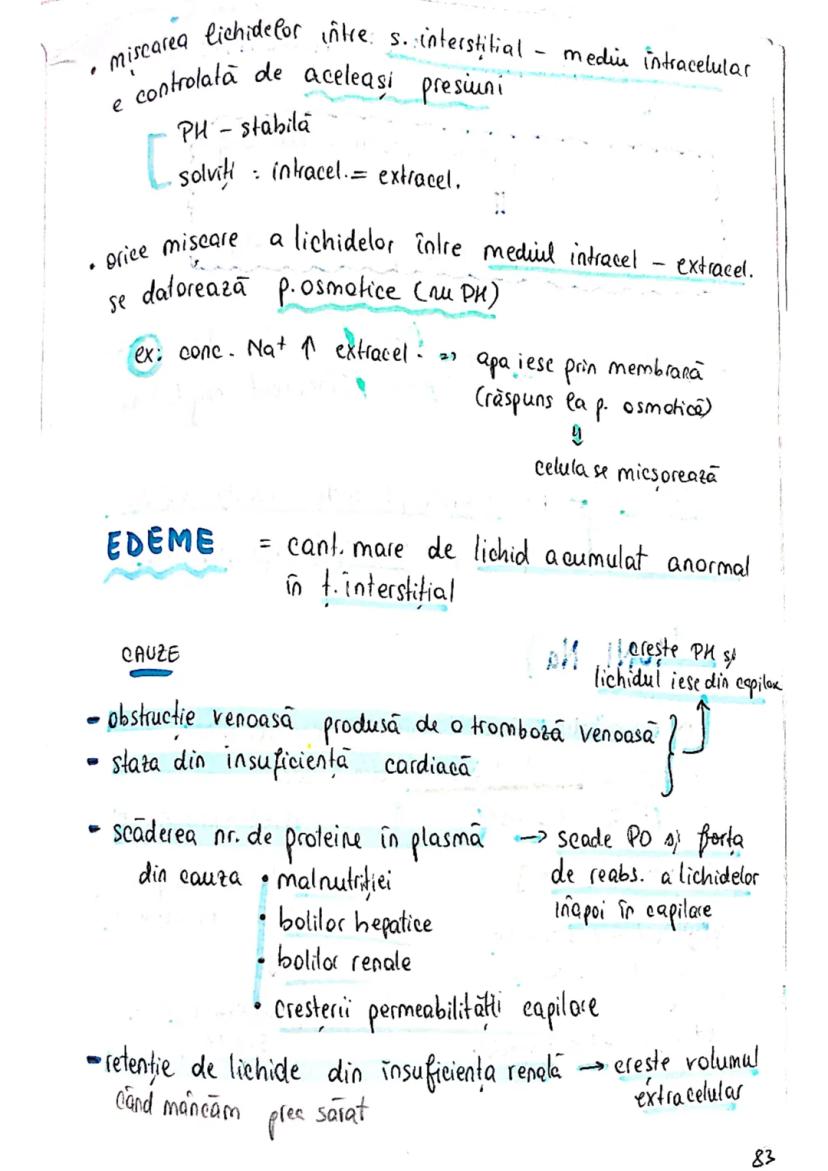 • mișcarea lichidelor între: s. interstițial – mediu intracelular
e controlată de aceleași presiuni
PH – stabilă
solviți : intracel. = extracel.
• orice mișcare a lichidelor între mediul intracel – extracel.
se datorează p. osmotice (nu PH)
ex: conc. Na+ ↑ extracel. => apa iese prin membrană
(răspuns la p. osmotică)
⇓
celula se micșorează
EDEME = cant. mare de lichid acumulat anormal
în ț. interstițial
CAUZE
crește PH și
lichidul iese din capilar
- obstrucție venoasă produsă de o tromboză venoasă
- staza din insuficiență cardiacă
- scăderea nr. de proteine în plasmă → scade PO și forța
din cauza • malnutriției de reabs. a lichidelor
• bolilor hepatice înapoi în capilare
• bolilor renale
• creșterii permeabilității capilare
- retenție de lichide din insuficiența renală → crește volumul
când mâncăm prea sărat extracelular
83